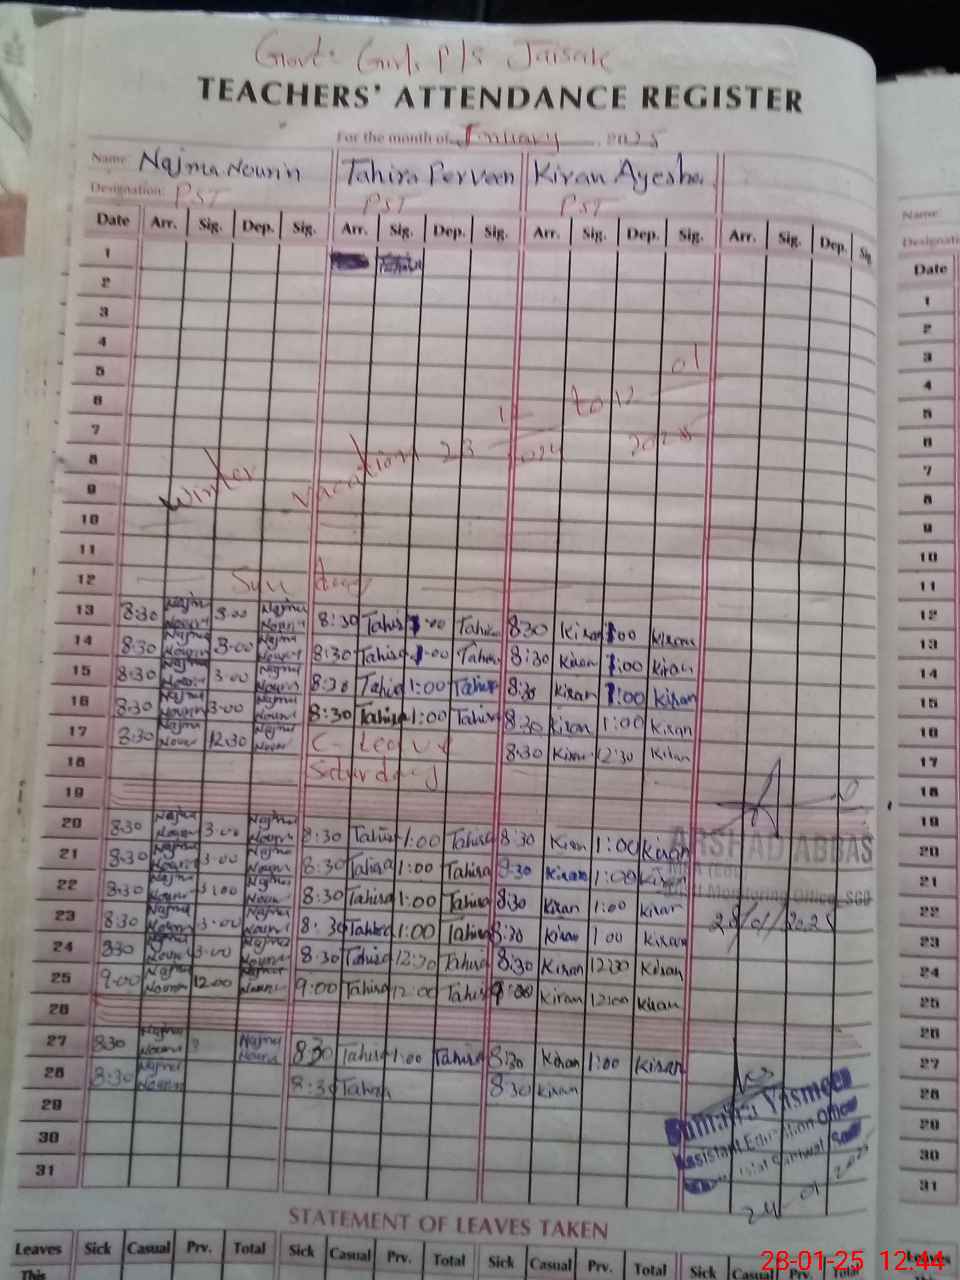 Govt. Girls P/S Jaisak
TEACHERS' ATTENDANCE REGISTER
For the month of January 2025
Name: Najma Nourin Tahira Perveen Kiran Ayesha
Designation: PST PST PST
Date Arr. Sig. Dep. Sig. Arr. Sig. Dep. Sig. Arr. Sig. Dep. Sig. Arr. Sig. Dep. Sig.
1
2
3
4
5
6
7
8
9
10
11
Winter Vacation 23 12 2024 to 12 01 2025
12 Sun day
13 8:30 Najma Nourin 3:00 Najma Nourin 8:30 Tahira 1:00 Tahira 8:30 Kiran 1:00 Kiran
14 8:30 Najma Nourin 3:00 Najma Nourin 8:30 Tahira 1:00 Tahira 8:30 Kiran 1:00 Kiran
15 8:30 Najma Nourin 3:00 Najma Nourin 8:30 Tahira 1:00 Tahira 8:30 Kiran 1:00 Kiran
16 8:30 Najma Nourin 3:00 Najma Nourin 8:30 Tahira 1:00 Tahira 8:30 Kiran 1:00 Kiran
17 8:30 Najma Nourin 12:30 Najma Nourin C-Leave 8:30 Kiran 12:30 Kiran
18 Saturday
19
20 8:30 Najma Nourin 3:00 Najma Nourin 8:30 Tahira 1:00 Tahira 8:30 Kiran 1:00 Kiran
ARSHAD ABBAS
21 8:30 Najma Nourin 3:00 Najma Nourin 8:30 Tahira 1:00 Tahira 8:30 Kiran 1:00 Kiran
Monitoring Officer SGD
22 8:30 Najma Nourin 3:00 Najma Nourin 8:30 Tahira 1:00 Tahira 8:30 Kiran 1:00 Kiran
28/01/2025
23 8:30 Najma Nourin 3:00 Najma Nourin 8:30 Tahira 1:00 Tahira 8:30 Kiran 1:00 Kiran
24 8:30 Najma Nourin 3:00 Najma Nourin 8:30 Tahira 12:30 Tahira 8:30 Kiran 12:30 Kiran
25 9:00 Najma Nourin 12:00 Najma Nourin 9:00 Tahira 12:00 Tahira 9:00 Kiran 12:00 Kiran
26
27 8:30 Najma Nourin Najma Nourin 8:30 Tahira 1:00 Tahira 8:30 Kiran 1:00 Kiran
28 8:30 Najma Nourin 8:30 Tahira 8:30 Kiran
29
30
31
Yasmeen
Assistant Education Officer
01 2025
STATEMENT OF LEAVES TAKEN
Leaves Sick Casual Prv. Total Sick Casual Prv. Total Sick Casual Prv. Total Sick Casual Prv. Total
This
Name:
Date
1
2
3
4
5
6
7
8
9
10
11
12
13
14
15
16
17
18
19
20
21
22
23
24
25
26
27
28
29
30
31
Leaves
28-01-25 12:44